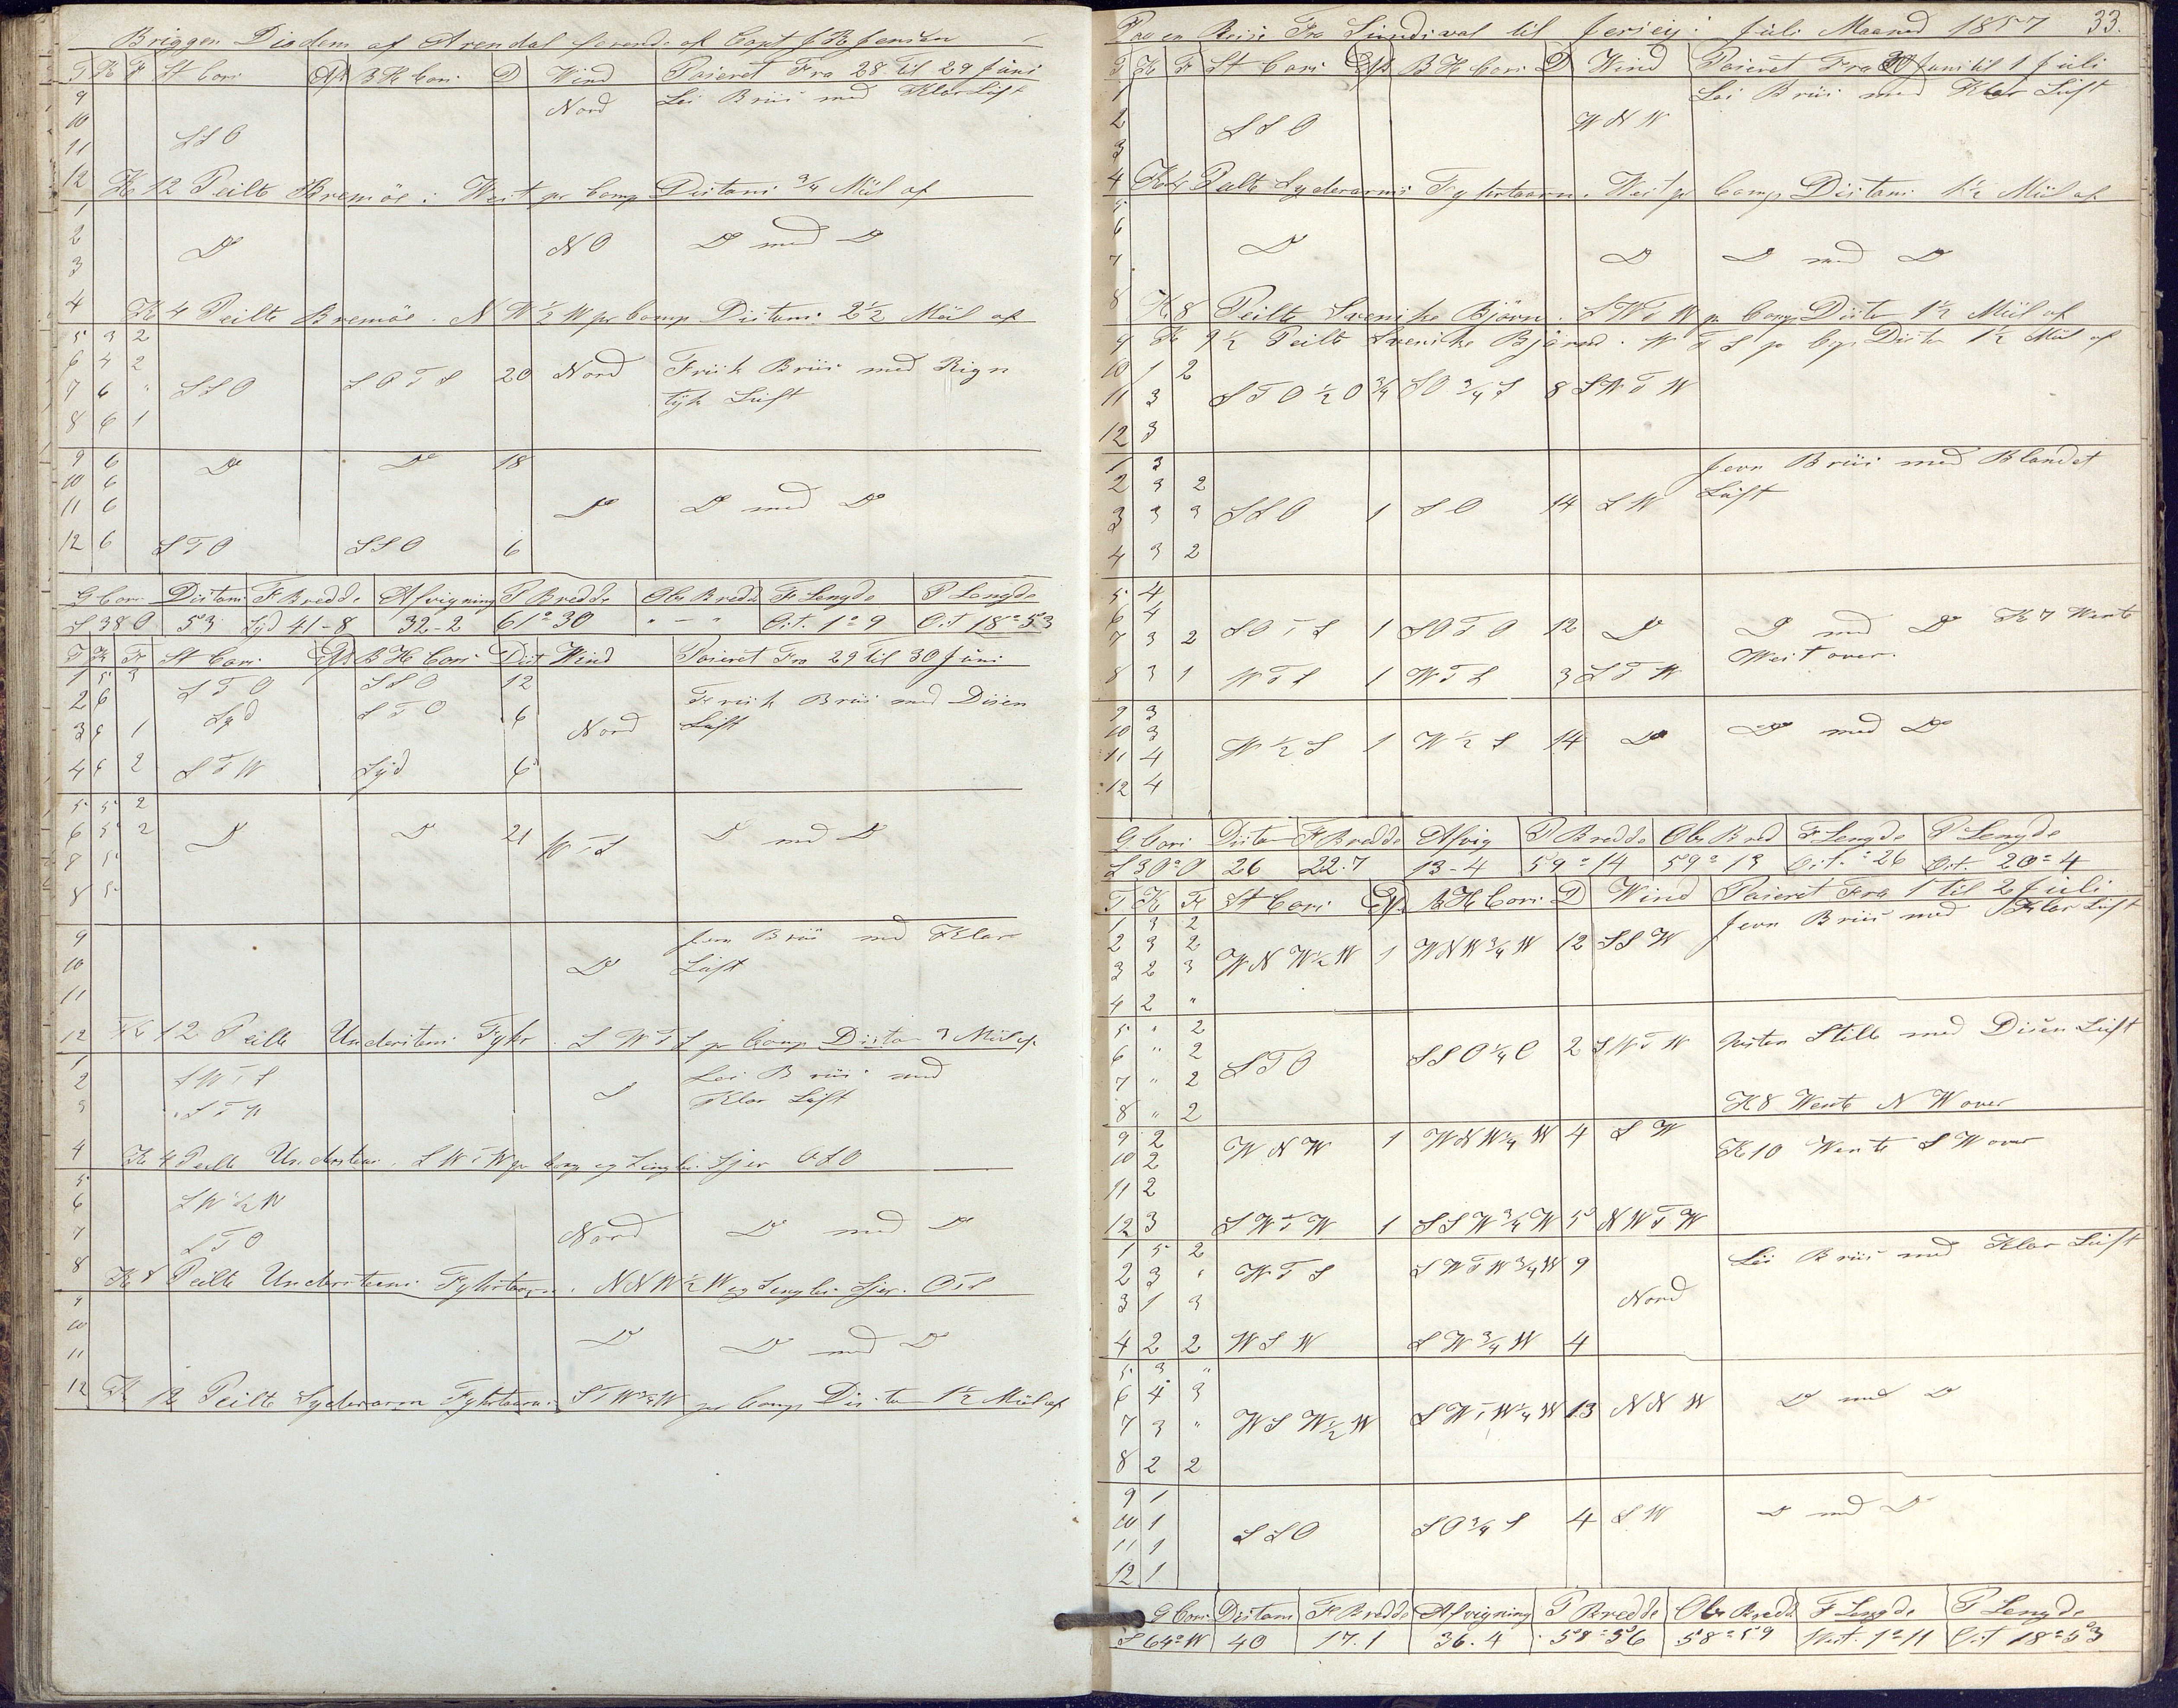 Briggen Diadem af Arendal ført af Capt J K Jensen
T K F St Cors Afd B H Cors D Wind Passeret Fra 28 til 29 Juni
9 Nord Lei Briis med Klar Luft
10
11 SSO
12 Kl 12 Peilte Bremöe i West pr Comp Distans 3/4 Miil af
1
2 Do NO Do med Do
3
4 Kl 4 Peilte Bremöe NW 1/2 W pr Comp Distans 2 1/2 Miil af
5 3 2
6 4 2 Nord Frisk Briis med Rign
7 6 " SSO SOTS 20 tyk Luft
8 6 1
9 6 Do Do 18
10 6
11 6 Do Do med Do
12 6 STO SSO 6
G Cors Distans F Bredde Afvigning P Bredde Obs Bredd F Lengde P Lengde
S 38 O 53 Syd 41-8 32-2 61° 30 " - " Ost. 1° 9 Ost 18° 53
T K F St Cors Afd B H Cors Dist Wind Passeret Fra 29 til 30 Juni
1 5 3 STO SSO 12
2 6 Syd STO 6 Frisk Briis med Disen
3 6 1 Nord Luft
4 6 2 STW Syd 6
5 5 2
6 5 2 Do Do 21 WTS Do med Do
7 5
8 5
9 Jevn Briis med Klar
10 Do Luft
11
12 Kl 12 Peilte Understens Fyhr SWTS pr Comp Distan 3 Miil af
1 Lei Briis med
2 SWTS S Klar Luft
3 STW
4 Kl 4 Peilte Understens SWTW pr Comp og Sjer OSO
5
6 SW 1/2 W
7 STO Nord Do med Do
8 Kl 8 Peilte Understens Fyhrtaarn NNW 1/2 W og Sjer OTS
9
10 Do Do med Do
11
12 Kl 12 Peilte Syderarm Fyhrtaarn STW 3/4 W pr Comp Distan 1 1/2 Miil af
Paa en Reise Fra Sundsval til Jersey: Juli Maaned 1857 33.
T K F St Cors Afd B H Cors D Wind Passeret Fra 30 Juni til 1 Juli
1 Lei Briis med Klar Luft
2 SSO WNW
3
4 Kl 4 Peilte Syderarms Fyhrtaarn West pr Comp Distans 1 1/2 Miil af
5
6 Do Do Do med Do
7
8 Kl 8 Peilte Svenske Björn SWTW pr Comp Distn 1 1/2 Miil af
9 Kl 9 1/2 Peilte Svenske Björn WTS pr Comp Distn 1 1/2 Miil af
10 1 2
11 3 STO 1/2 O 3/4 SO 3/4 S 8 SWTW
12 3
1 3 Jevn Briis med Blandet
2 3 2 Luft
3 3 3 SSO 1 SO 14 SW
4 3 2
5 4
6 4
7 3 2 SOTS 1 SOTO 12 Do Do med Do Kl 7 Wente
8 3 1 WTS 1 WTS 3 STW West over.
9 3
10 3 W 1/2 S 1 W 1/2 S 14 Do Do med Do
11 4
12 4
G Cors Distan F Bredde Afvig P Bredde Obs Bred F Lengde P Lengde
S 30° O 26 22.7 13-4 59° 14 59° 13 Ost. ° 26 Ost 20° 4
T K F St Cors Afd B H Cors D Wind Passeret Fra 1 til 2 Juli
1 3 2 Jevn Briis med Klar Luft
2 3 2 WNW 1/2 W 1 WNW 3/4 W 12 SSW
3 2 3
4 2 "
5 " 2 Nesten Stille med Disen Luft
6 " 2 STO SSO 1/4 O 2 SWTW
7 " 2
8 " 2 Kl 8 Wente NW over
9 2 WNW 1 WNW 3/4 W 4 SW
10 2 Kl 10 Wente SW over
11 2
12 3 SWTW 1 SSW 3/4 W 5 NWTW
1 5 2 Lei Briis med Klar Luft
2 3 " WTS SWTW 3/4 W 9
3 1 3 Nord
4 2 2 WSW SW 3/4 W 4
5 3 "
6 4 3 Do med Do
7 3 " WSW 1/2 W SWTW 1/4 W 13 NNW
8 2 2
9 1
10 1 SSO SO 3/4 S 4 SW Do med Do
11 1
12 1
G Cors Distans F Bredde Afvigning P Bredde Obs Bredd F Lengde P Lengde
S 64° W 40 17.1 36.4 58° 56 58° 59 West. 1° 11 Ost 18° 53